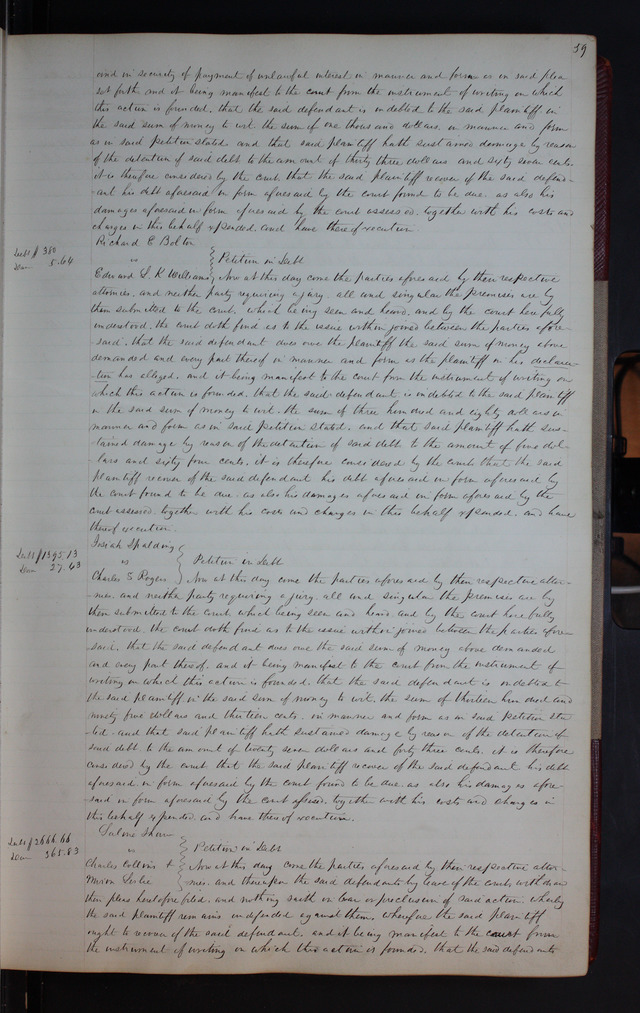 59
and in security of payment of unlawful interest in manner and form as in said plea
set forth and it being manifest to the court from the instrument of writing on which
this action is founded, that the said defendant is indebted to the said plaintiff in
the said sum of money to wit the sum of one thousand dollars. in manner and form
as in said petition stated. and that said plaintiff hath sustained damage by reason
of the detention of said debt to the amount of thirty three dollars and sixty seven cents.
it is therefore considered by the court that the said plaintiff recover of the said defend-
ant his debt aforesaid in form aforesaid by the court found to be due. as also his
damages aforesaid in form aforesaid by the court assessed. together with his costs and
charges in this behalf expended. and have thereof execution.
Richard E Bolton
Debt $ 380
vs Petition in Debt
Dam 5.64
Edward S. K Williams Now at this day come the parties aforesaid by their respective
attornies. and neither party requiring a jury. all and singular the premises are by
them submitted to the court. which being seen and heard. and by the court here fully
understood. the court doth find as to the issue within joined between the parties afore-
said. that the said defendant does owe the plaintiff the said sum of money above
demanded and every part thereof in manner and form as the plaintiff in his declara-
tion has alleged. and it being manifest to the court from the instrument of writing on
which this action is founded. that the said defendant is indebted to the said plaintiff
in the said sum of money to wit. the sum of three hundred and eighty dollars in
manner and form as in said petition stated. and that said plaintiff hath sus-
tained damage by reason of the detention of said debt to the amount of five dol-
lars and sixty four cents. it is therefore considered by the court that the said
plaintiff recover of the said defendant his debt aforesaid in form aforesaid by
the court found to be due. as also his damages aforesaid in form aforesaid by the
court assessed. together with his costs and charges in this behalf expended. and have
thereof execution.
Josiah Spalding
Debt $1395.13
vs Petition in Debt
Dam 27.43
Charles S Rogers Now at this day come the parties aforesaid by their respective attor-
nies. and neither party requiring a jury. all and singular the premises are by
them submitted to the court which being seen and heard. and by the court here fully
understood. the court doth find as to the issue within joined between the parties afore-
said. that the said defendant does owe the said sum of money above demanded
and every part thereof. and it being manifest to the court from the instrument of
writing on which this action is founded. that the said defendant is indebted to
the said plaintiff in the said sum of money to wit. the sum of thirteen hundred and
ninety five dollars and thirteen cents. in manner and form as in said petition sta-
ted. and that said plaintiff hath sustained damage by reason of the detention of
said debt to the amount of twenty seven dollars and forty three cents. it is therefore
considered by the court that the said plaintiff recover of the said defendant his debt
aforesaid in form aforesaid by the court found to be due. as also his damages afore-
said in form aforesaid by the court assessed. together with his costs and charges in
this behalf expended and have thereof execution.
Shaw
Debt $2666.66
vs Petition in Debt
Dam 365.83
Charles Collins & Now at this day come the parties aforesaid by their respective attor-
Miron Leslie nies. and thereupon the said defendants by leave of the court withdraw
their pleas heretofore filed. and nothing saith in bar or preclusion of said action. whereby
the said plaintiff remains undefended against them. wherefore the said plaintiff
ought to recover of the said defendant. and it being manifest to the court from
the instrument of writing on which this action is founded. that the said defendants